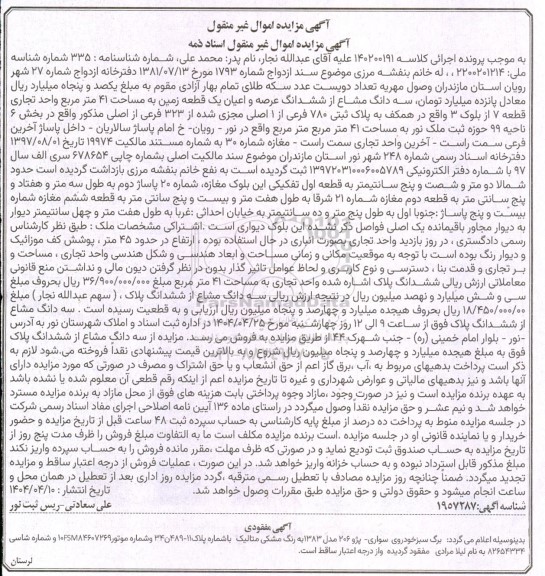 آگهی مزایده اموال غیر منقول
آگهی مزایده اموال غیر منقول اسناد ذمه
به موجب پرونده اجرائی کلاسه ۱۴۰۲۰۰۱۹۱ علیه آقای عبدالله نجار، نام پدر: محمد علی، شماره شناسنامه : ۳۳۵ شماره شناسه
ملی: ۲۲۰۰۲۰۱۲۱۴ ، ، له خانم بنفشه مرزی موضوع سند ازدواج شماره ۱۷۹۳ مورخ ۱۳۸۱/۰۷/۱۳ دفترخانه ازدواج شماره ۲۷ شهر
رویان استان مازندران وصول مهریه تعداد دویست عدد سکه طلای تمام بهار آزادی مقوم به مبلغ یکصد و پنجاه میلیارد ریال
معادل پانزده میلیارد تومان، سه دانگ مشاع از ششدانگ عرصه و اعیان یک قطعه زمین به مساحت ۴۱ متر مربع واحد تجاری
قطعه ۷ از بلوک ۳ واقع در همکف به پلاک ثبتی ۷۸۰ فرعی از ۱ اصلی مجزی شده از ۳۲۳ فرعی از اصلی مذکور واقع در بخش ۶
ناحیه ۹۹ حوزه ثبت ملک نور به مساحت ۴۱ متر مربع متر مربع واقع در نور - رویان- خ امام پاساژ سالاریان - داخل پاساژ آخرین
فرعی سمت راست - آخرین واحد تجاری سمت راست - مغازه شماره ۳۰ به شماره مستند مالکیت ۱۹۹۷۴ تاریخ ۱۳۹۷/۰۸/۰۱
دفترخانه اسناد رسمی شماره ۲۴۸ شهر نور استان مازندران موضوع سند مالکیت اصلی بشماره چاپی ۶۷۸۶۵۴ سری الف سال
۹۷ با شماره دفتر الکترونیکی ۱۳۹۷۲۰۳۱۰۰۰۶۰۰۵۷۸۹ ثبت گردیده است به نفع خانم بنفشه مرزی بازداشت گردیده است حدود
شمالا دو متر و شصت و پنج سانتیمتر به قطعه اول تفکیکی این بلوک مغازه، شماره ۲۰ پاساژ دوم به طول سه متر و هفتاد و
پنج سانتی متر به قطعه دوم مغازه شماره ۲۱ شرقا به طول هفت متر و بیست و پنج سانتی متر به قطعه ششم مغازه شماره
بیست و پنج پاساژ :جنوبا اول به طول پنج متر و سانتیمتر به خیابان احداثی :غربا به طول هفت متر و چهل سانتیمتر دیوار
به دیوار مجاور باقیمانده یک اصلی فواصل کوچک این بلوک دیواری است .اشتراکی مشخصات ملک : طبق نظر کارشناس
رسمی دادگستری ، در روز بازدید واحد تجاری بصورت انباری در حال استفاده بوده ، ارتفاع در حدود ۴۵ متر ، پوشش کف موزائیک
و دیوار رنگ بوده است با توجه به موقعیت مکانی و زمانی مساحت و ابعاد هندسی و شکل هندسی واحد تجاری ، مساحت و
بر تجاری و قدمت بنا ، دسترسی و نوع کاربری و لحاظ عوامل تاثیر گذار بدون در نظر گرفتن دیون مالی و نداشتن منع قانونی
معاملاتی ارزش ریالی ششدانگ پلاک اشاره شده واحد تجاری به مساحت ۴۱ متر مربع مبلغ ۳۶/۹۰۰/۰۰۰/۰۰۰ ریال بحروف مبلغ
سی و شش میلیارد و نهصد میلیون ریال در نتیجه ارزش ریالی سه دانگ مشاع از ششدانگ پلاک ، ( سهم عبدالله نجار ) مبلغ
۱۸/۴۵۰/۰۰۰/۰۰ ریال بحروف هیجده میلیارد و چهارصد و پنجاه میلیون ریال ارزیابی و به قطعیت رسیده است . سه دانگ مشاع
از ششدانگ پلاک فوق از ساعت ۹ الی ۱۲ روز چهارشنبه مورخ ۱۴۰۴/۰۴/۲۵ در اداره ثبت اسناد و املاک شهرستان نور به آدرس
-نور - بلوار امام خمینی (ره) - جنب شهرک ۱۴۴ از طریق مزایده به فروش می رسد. مزایده از سه دانگ مشاع از ششدانگ پلاک
فوق به مبلغ هیجده میلیارد و چهارصد و پنجاه میلیون ریال شروع و به بالاترین قیمت پیشنهادی نقداً فروخته می‌شود لازم به
ذکر است پرداخت بدهیهای مربوط به ،آب ،برق گاز اعم از حق انشعاب و یا حق اشتراک و مصرف در صورتی که مورد مزایده دارای
آنها باشد و نیز بدهیهای مالیاتی و عوارض شهرداری و غیره تا تاریخ مزایده اعم از اینکه رقم قطعی آن معلوم شده یا نشده باشد
به عهده برنده مزایده است و نیز در صورت وجود ،مازاد وجوه پرداختی بابت هزینه های فوق از محل مازاد به برنده مزایده مسترد
خواهد شد و نیم عشر و حق مزایده نقداً وصول میگردد در راستای ماده ۱۳۶ آیین نامه اصلاحی اجرای مفاد اسناد رسمی شرکت
در جلسه مزایده منوط به پرداخت ده درصد از مبلغ پایه کارشناسی به حساب سپرده ثبت ۴۸ ساعت قبل از تاریخ مزایده و حضور
خریدار و یا نماینده قانونی او در جلسه مزایده .است برنده مزایده مکلف است ما به التفاوت مبلغ فروش را ظرف مدت پنج روز از
تاریخ مزایده به حساب صندوق ثبت تودیع نماید و در صورتی که ظرف مهلت ،مقرر مانده فروش را به حساب سپرده واریز نکند
مبلغ مذکور قابل استرداد نبوده و به حساب خزانه واریز خواهد شد. در این صورت ، عملیات فروش از درجه اعتبار ساقط و مزایده
تجدید میگردد. ضمنا چنانچه روز مزایده مصادف با تعطیل رسمی مترقبه ،گردد مزایده روز اداری بعد از تعطیل در همان محل و
ساعت انجام میشود و حقوق دولتی و حق مزایده طبق مقررات وصول خواهد شد. تاریخ انتشار : ۱۴۰۴/۰۴/۱۰
شناسه آگهی: ۱۹۵۷۲۸۷ علی سعادتی-رییس ثبت نور
آگهی مفقودی
بدینوسیله اعلام می گردد: برگ سبز خودروی سواری- پژو ۲۰۶ مدل ۱۳۸۳ به رنگ مشکی متالیک باشماره پلاک ۱۱-۴۸۹ن۳۴ و شماره موتور ۱۰FSM۸۴۶۰۷۲۶۹ و شماره شاسی
۸۲۶۵۴۳۳۴ به نام لیلا مرادی مفقود گردیده واز درجه اعتبار ساقط است. لرستان